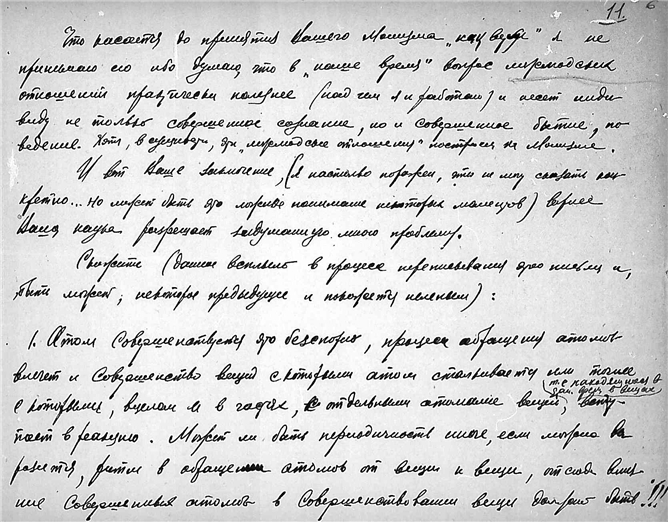 11
6
Что касается до принятия Вашего Монизма я не
принимаю его ибо думаю, что в „наше время“ вопрос
отношений практически полезнее (над чем я и работаю) и несет инди-
виду не только совершенное сознание, но и совершенное бытие, по-
ведение. Хотя, в сущности, эти отношения построены на Монизме.
И вот Ваше заключение, (я настолько поражен, что не могу сказать кон-
кретно... но может быть это ложное понимание некоторых моментов) вернее
Ваша наука разрешает задуманную мною проблему.
Скажите (данное всплыло в процессе переписывания этого письма и,
быть может, некоторое предыдущее и покажется нелепым):
1. Атом Совершенствуется это бесспорно, процесс обращения атомов
влечет и Совершенство вещей с которыми атом сталкивается или точнее
т.е. находящимися в
вещах
с которыми, в отдельными атомами вещей,
пает в реакцию. Может ли быть периодичность иначе, если можно вы-
разиться, ритм в обращении атомов от вещи к вещи, отсюда влия-
ние Совершенных атомов в Совершенствовании вещи должно быть!!!